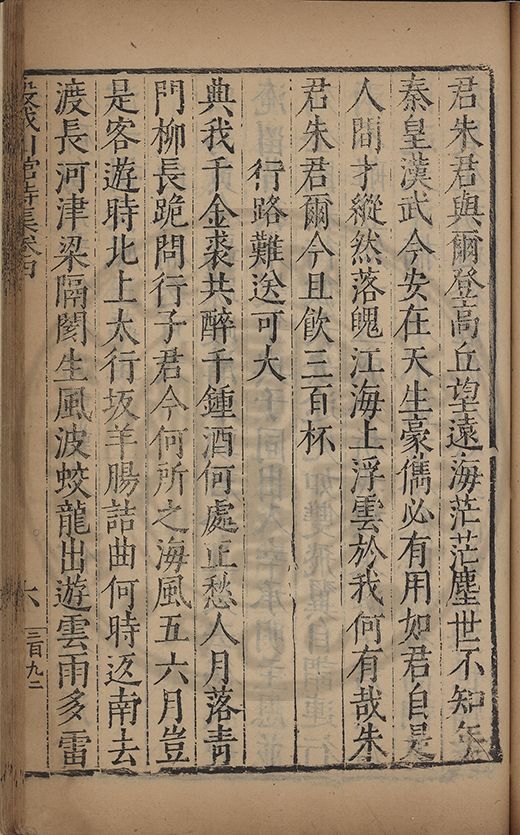 君朱君與爾登高丘望遠海茫茫塵世不知年
秦皇漢武今安在天生豪儁必有用如君自是
人間才縱然落魄江海上浮雲於我何有哉朱
君朱君爾今且飲三百杯
行路難送可大
典我千金裘共醉千鍾酒何處正愁人月落青
門柳長跪問行子君今何所之海風五六月豈
是客遊時北上太行坂羊腸詰曲何時迄南去
渡長河津梁隔閡生風波蛟龍出遊雲雨多雷
館詩集卷四
六
三百九二